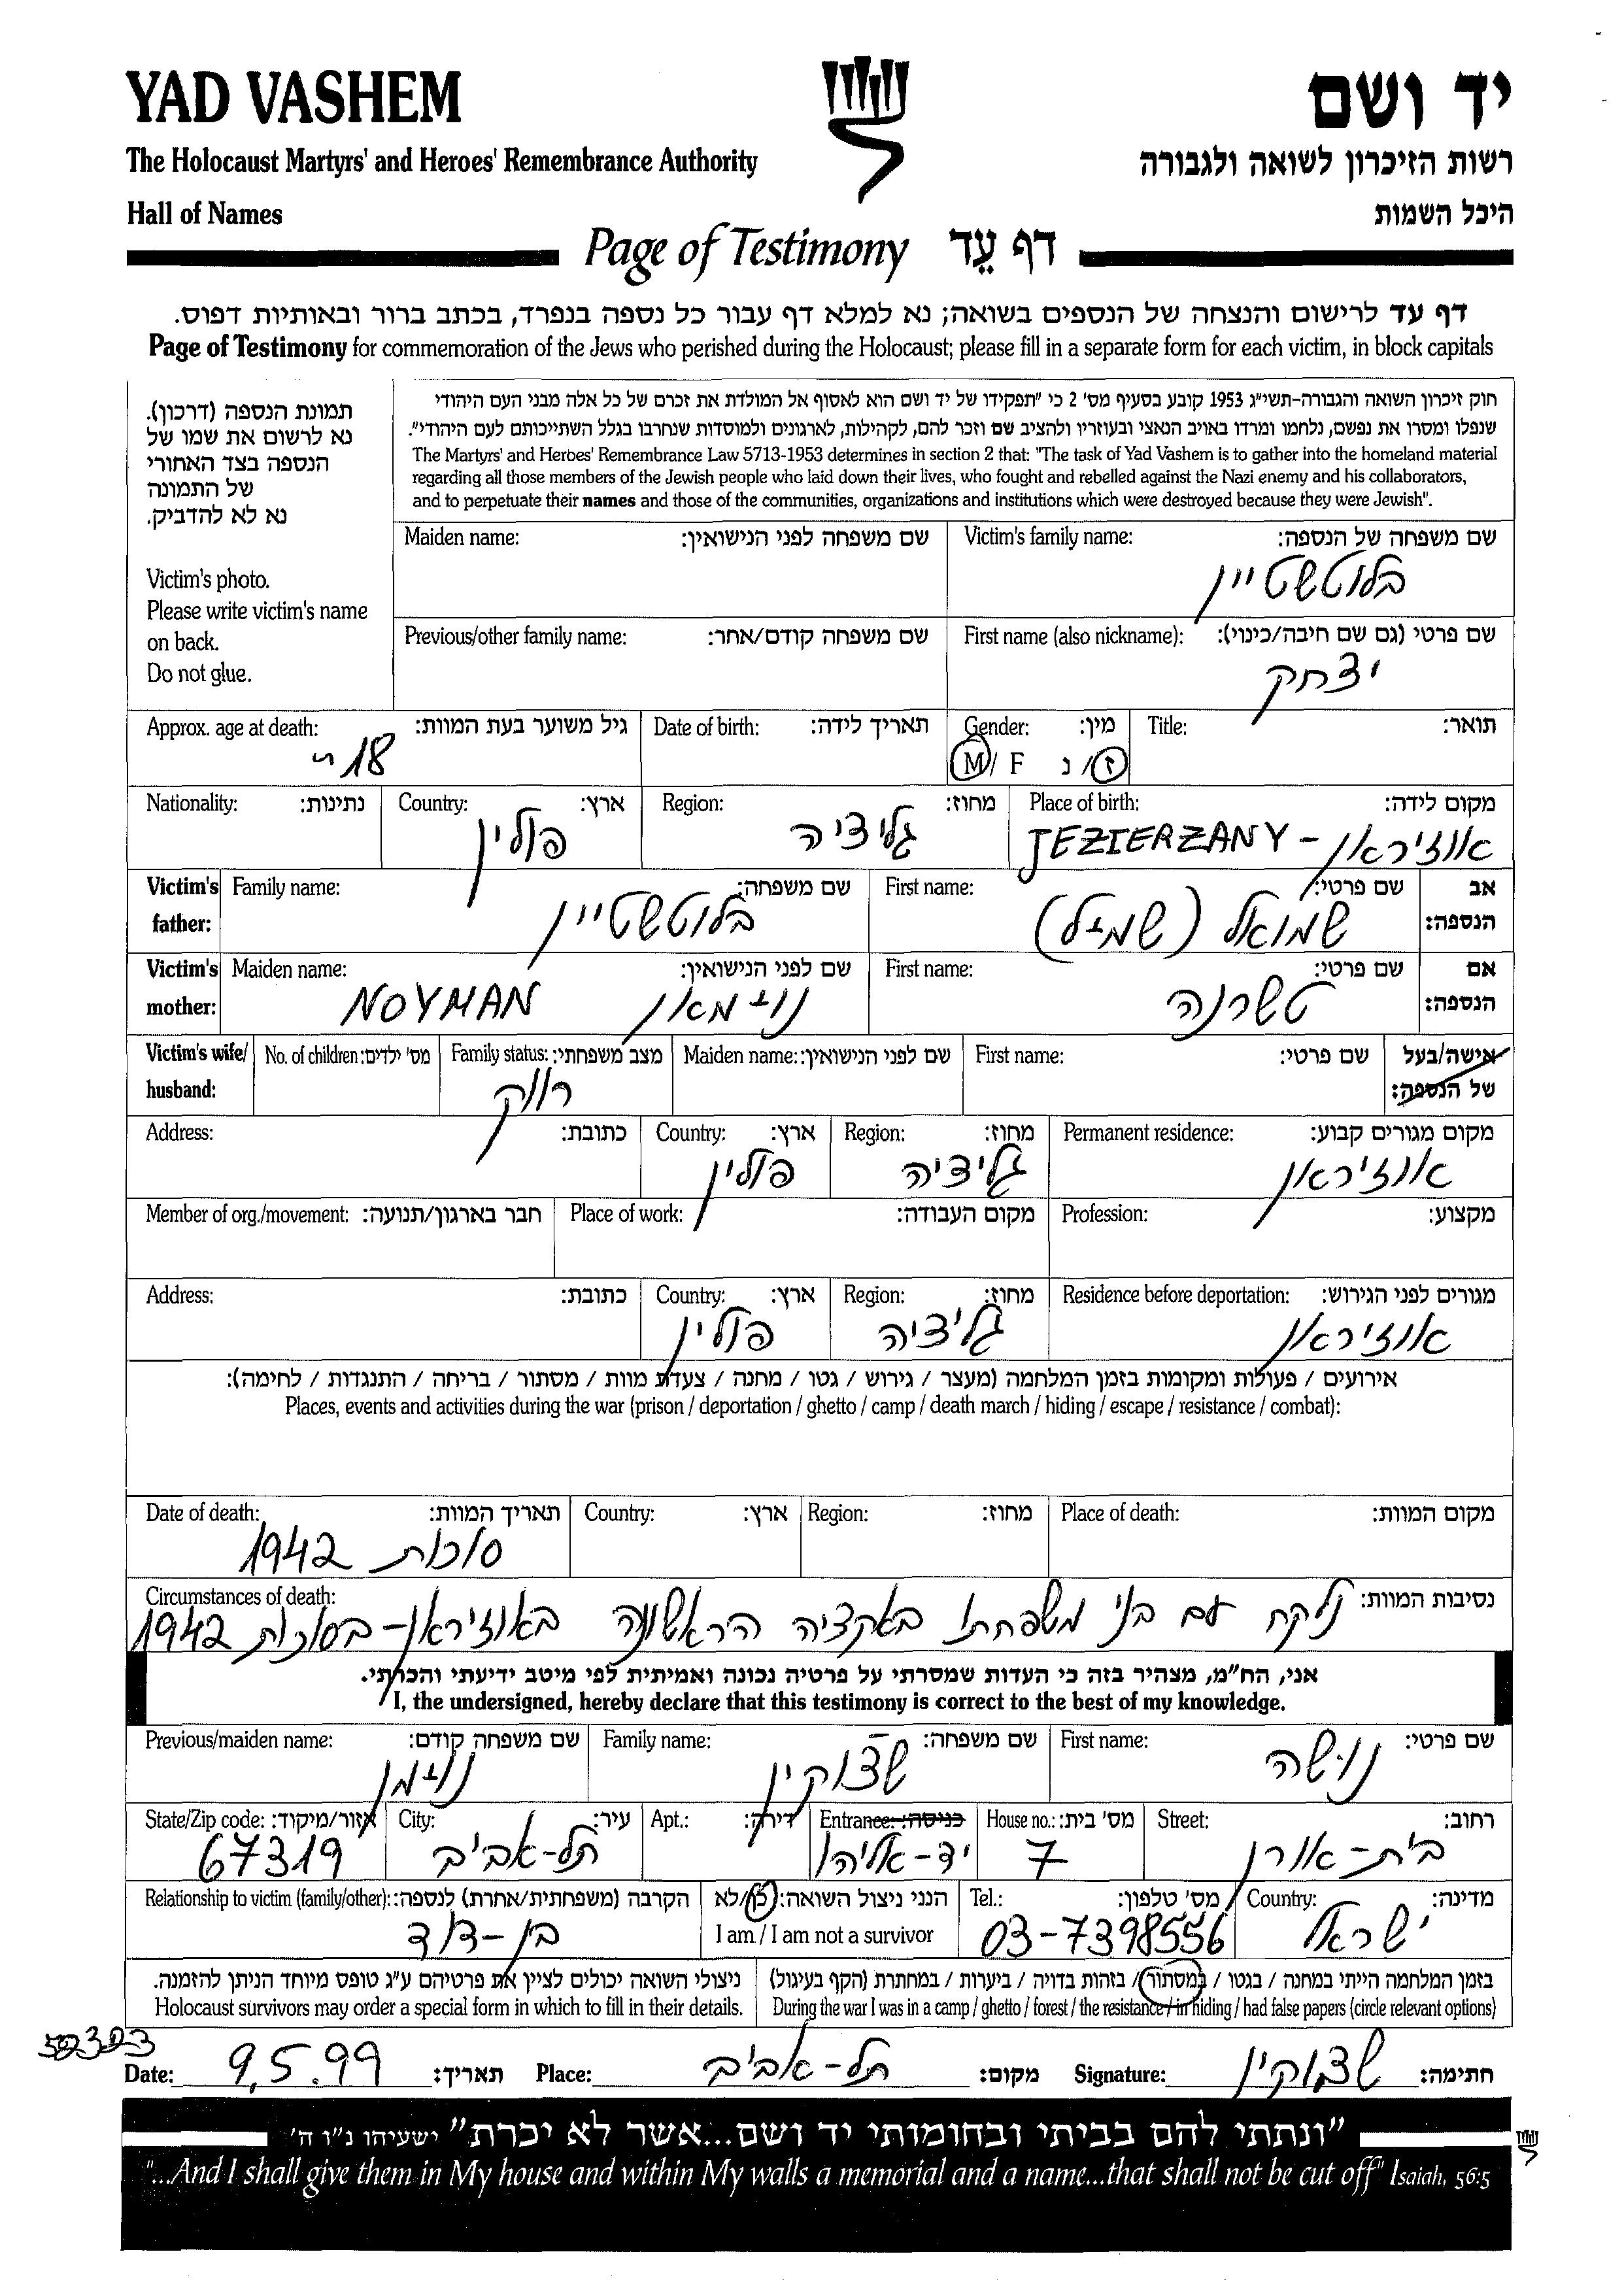 YAD VASHEM יד ושם
The Holocaust Martyrs' and Heroes' Remembrance Authority רשות הזיכרון לשואה ולגבורה
Hall of Names היכל השמות
Page of Testimony דף עֵד
דף עד לרישום והנצחה של הנספים בשואה; נא למלא דף עבור כל נספה בנפרד, בכתב ברור ובאותיות דפוס.
Page of Testimony for commemoration of the Jews who perished during the Holocaust; please fill in a separate form for each victim, in block capitals
תמונת הנספה (דרכון).
נא לרשום את שמו של
הנספה בצד האחורי
של התמונה
נא לא להדביק.
Victim's photo.
Please write victim's name
on back.
Do not glue.
חוק זיכרון השואה והגבורה-תשי"ג 1953 קובע בסעיף מס' 2 כי "תפקידו של יד ושם הוא לאסוף אל המולדת את זכרם של כל אלה מבני העם היהודי
שנפלו ומסרו את נפשם, נלחמו ומרדו באויב הנאצי ובעוזריו ולהציב שם וזכר להם, לקהילות, לארגונים ולמוסדות שנחרבו בגלל השתייכותם לעם היהודי".
The Martyrs' and Heroes' Remembrance Law 5713-1953 determines in section 2 that: "The task of Yad Vashem is to gather into the homeland material
regarding all those members of the Jewish people who laid down their lives, who fought and rebelled against the Nazi enemy and his collaborators,
and to perpetuate their names and those of the communities, organizations and institutions which were destroyed because they were Jewish".
Maiden name: שם משפחה לפני הנישואין: Victim's family name: שם משפחה של הנספה:
בלוטשטיין
Previous/other family name: שם משפחה קודם/אחר: First name (also nickname): שם פרטי (גם שם חיבה/כינוי):
יצחק
Approx. age at death: גיל משוער בעת המוות: Date of birth: תאריך לידה: Gender: מין: Title: תואר:
18 M / F ז / נ
Nationality: נתינות: Country: ארץ: Region: מחוז: Place of birth: מקום לידה:
פולין גליציה JEZIERZANY - אוזיראן
Victim's Family name: שם משפחה: First name: שם פרטי: אב
father: בלוטשטיין שמואל (שמיל) הנספה:
Victim's Maiden name: שם לפני הנישואין: First name: שם פרטי: אם
mother: NOYMAN נוימאן טשרנה הנספה:
Victim's wife/ No. of children: מס' ילדים: Family status: מצב משפחתי: Maiden name: שם לפני הנישואין: First name: שם פרטי: אישה/בעל
husband: רווק של הנספה:
Address: כתובת: Country: ארץ: Region: מחוז: Permanent residence: מקום מגורים קבוע:
פולין גליציה אוזיראן
Member of org./movement: חבר בארגון/תנועה: Place of work: מקום העבודה: Profession: מקצוע:
Address: כתובת: Country: ארץ: Region: מחוז: Residence before deportation: מגורים לפני הגירוש:
פולין גליציה אוזיראן
אירועים / פעולות ומקומות בזמן המלחמה (מעצר / גירוש / גטו / מחנה / צעדת מוות / מסתור / בריחה / התנגדות / לחימה):
Places, events and activities during the war (prison / deportation / ghetto / camp / death march / hiding / escape / resistance / combat):
Date of death: תאריך המוות: Country: ארץ: Region: מחוז: Place of death: מקום המוות:
סוכות 1942
Circumstances of death: נסיבות המוות:
נלקח עם בני משפחתו באקציה הראשונה באוזיראן - בסוכות 1942
אני, הח"מ, מצהיר בזה כי העדות שמסרתי על פרטיה נכונה ואמיתית לפי מיטב ידיעתי והכרתי.
I, the undersigned, hereby declare that this testimony is correct to the best of my knowledge.
Previous/maiden name: שם משפחה קודם: Family name: שם משפחה: First name: שם פרטי:
נוימן שצוקין נושה
State/Zip code: אזור/מיקוד: City: עיר: Apt.: דירה: Entrance: כניסה: House no.: מס' בית: Street: רחוב:
67319 תל-אביב יד-אליהו 7 בית-אורן
Relationship to victim (family/other): הקרבה (משפחתית/אחרת) לנספה: הנני ניצול השואה: כן/לא Tel.: מס' טלפון: Country: מדינה:
בן-דוד I am / I am not a survivor 03-7398556 ישראל
ניצולי השואה יכולים לציין את פרטיהם ע"ג טופס מיוחד הניתן להזמנה. בזמן המלחמה הייתי במחנה / בגטו / במסתור / בזהות בדויה / ביערות / במחתרת (הקף בעיגול)
Holocaust survivors may order a special form in which to fill in their details. During the war I was in a camp / ghetto / forest / the resistance / in hiding / had false papers (circle relevant options)
Date: 9.5.99 תאריך: Place: תל-אביב מקום: Signature: שצוקין חתימה:
"ונתתי להם בביתי ובחומותי יד ושם...אשר לא יכרת" ישעיהו נ"ו ה'
"...And I shall give them in My house and within My walls a memorial and a name...that shall not be cut off" Isaiah, 56:5